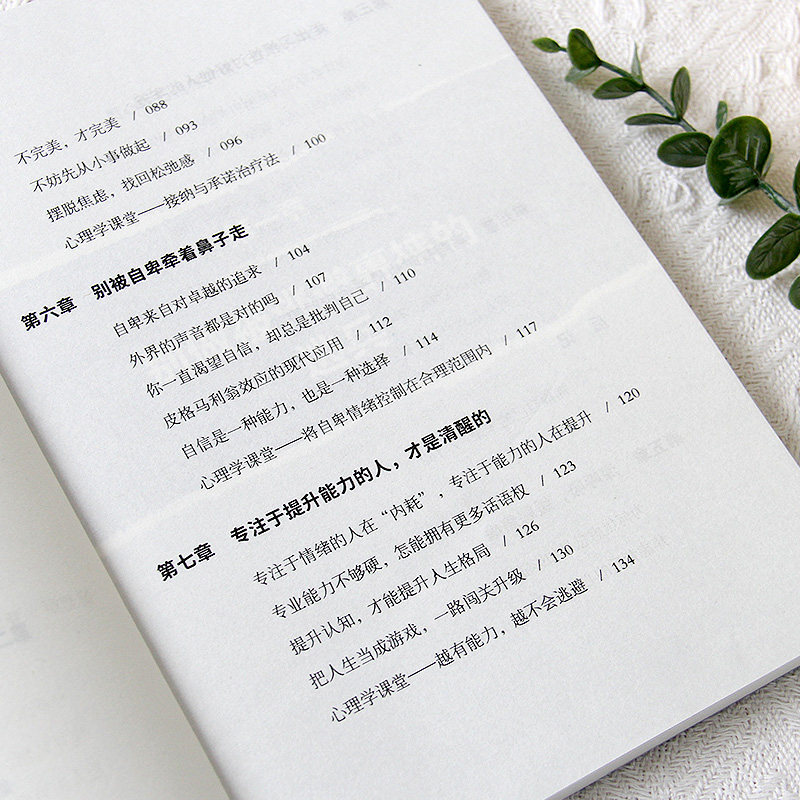 不完美，才完美 / 088
不妨先从小事做起 / 093
摆脱焦虑，找回松弛感 / 096
心理学课堂——接纳与承诺治疗法 / 100
第六章 别被自卑牵着鼻子走
自卑来自对卓越的追求 / 104
外界的声音都是对的吗 / 107
你一直渴望自信，却总是批判自己 / 110
皮格马利翁效应的现代应用 / 112
自信是一种能力，也是一种选择 / 114
心理学课堂——将自卑情绪控制在合理范围内 / 117
第七章 专注于提升能力的人，才是清醒的
专注于情绪的人在“内耗”，专注于能力的人在提升 / 120
专业能力不够硬，怎能拥有更多话语权 / 123
提升认知，才能提升人生格局 / 126
把人生当成游戏，一路闯关升级 / 130
心理学课堂——越有能力，越不会逃避 / 134